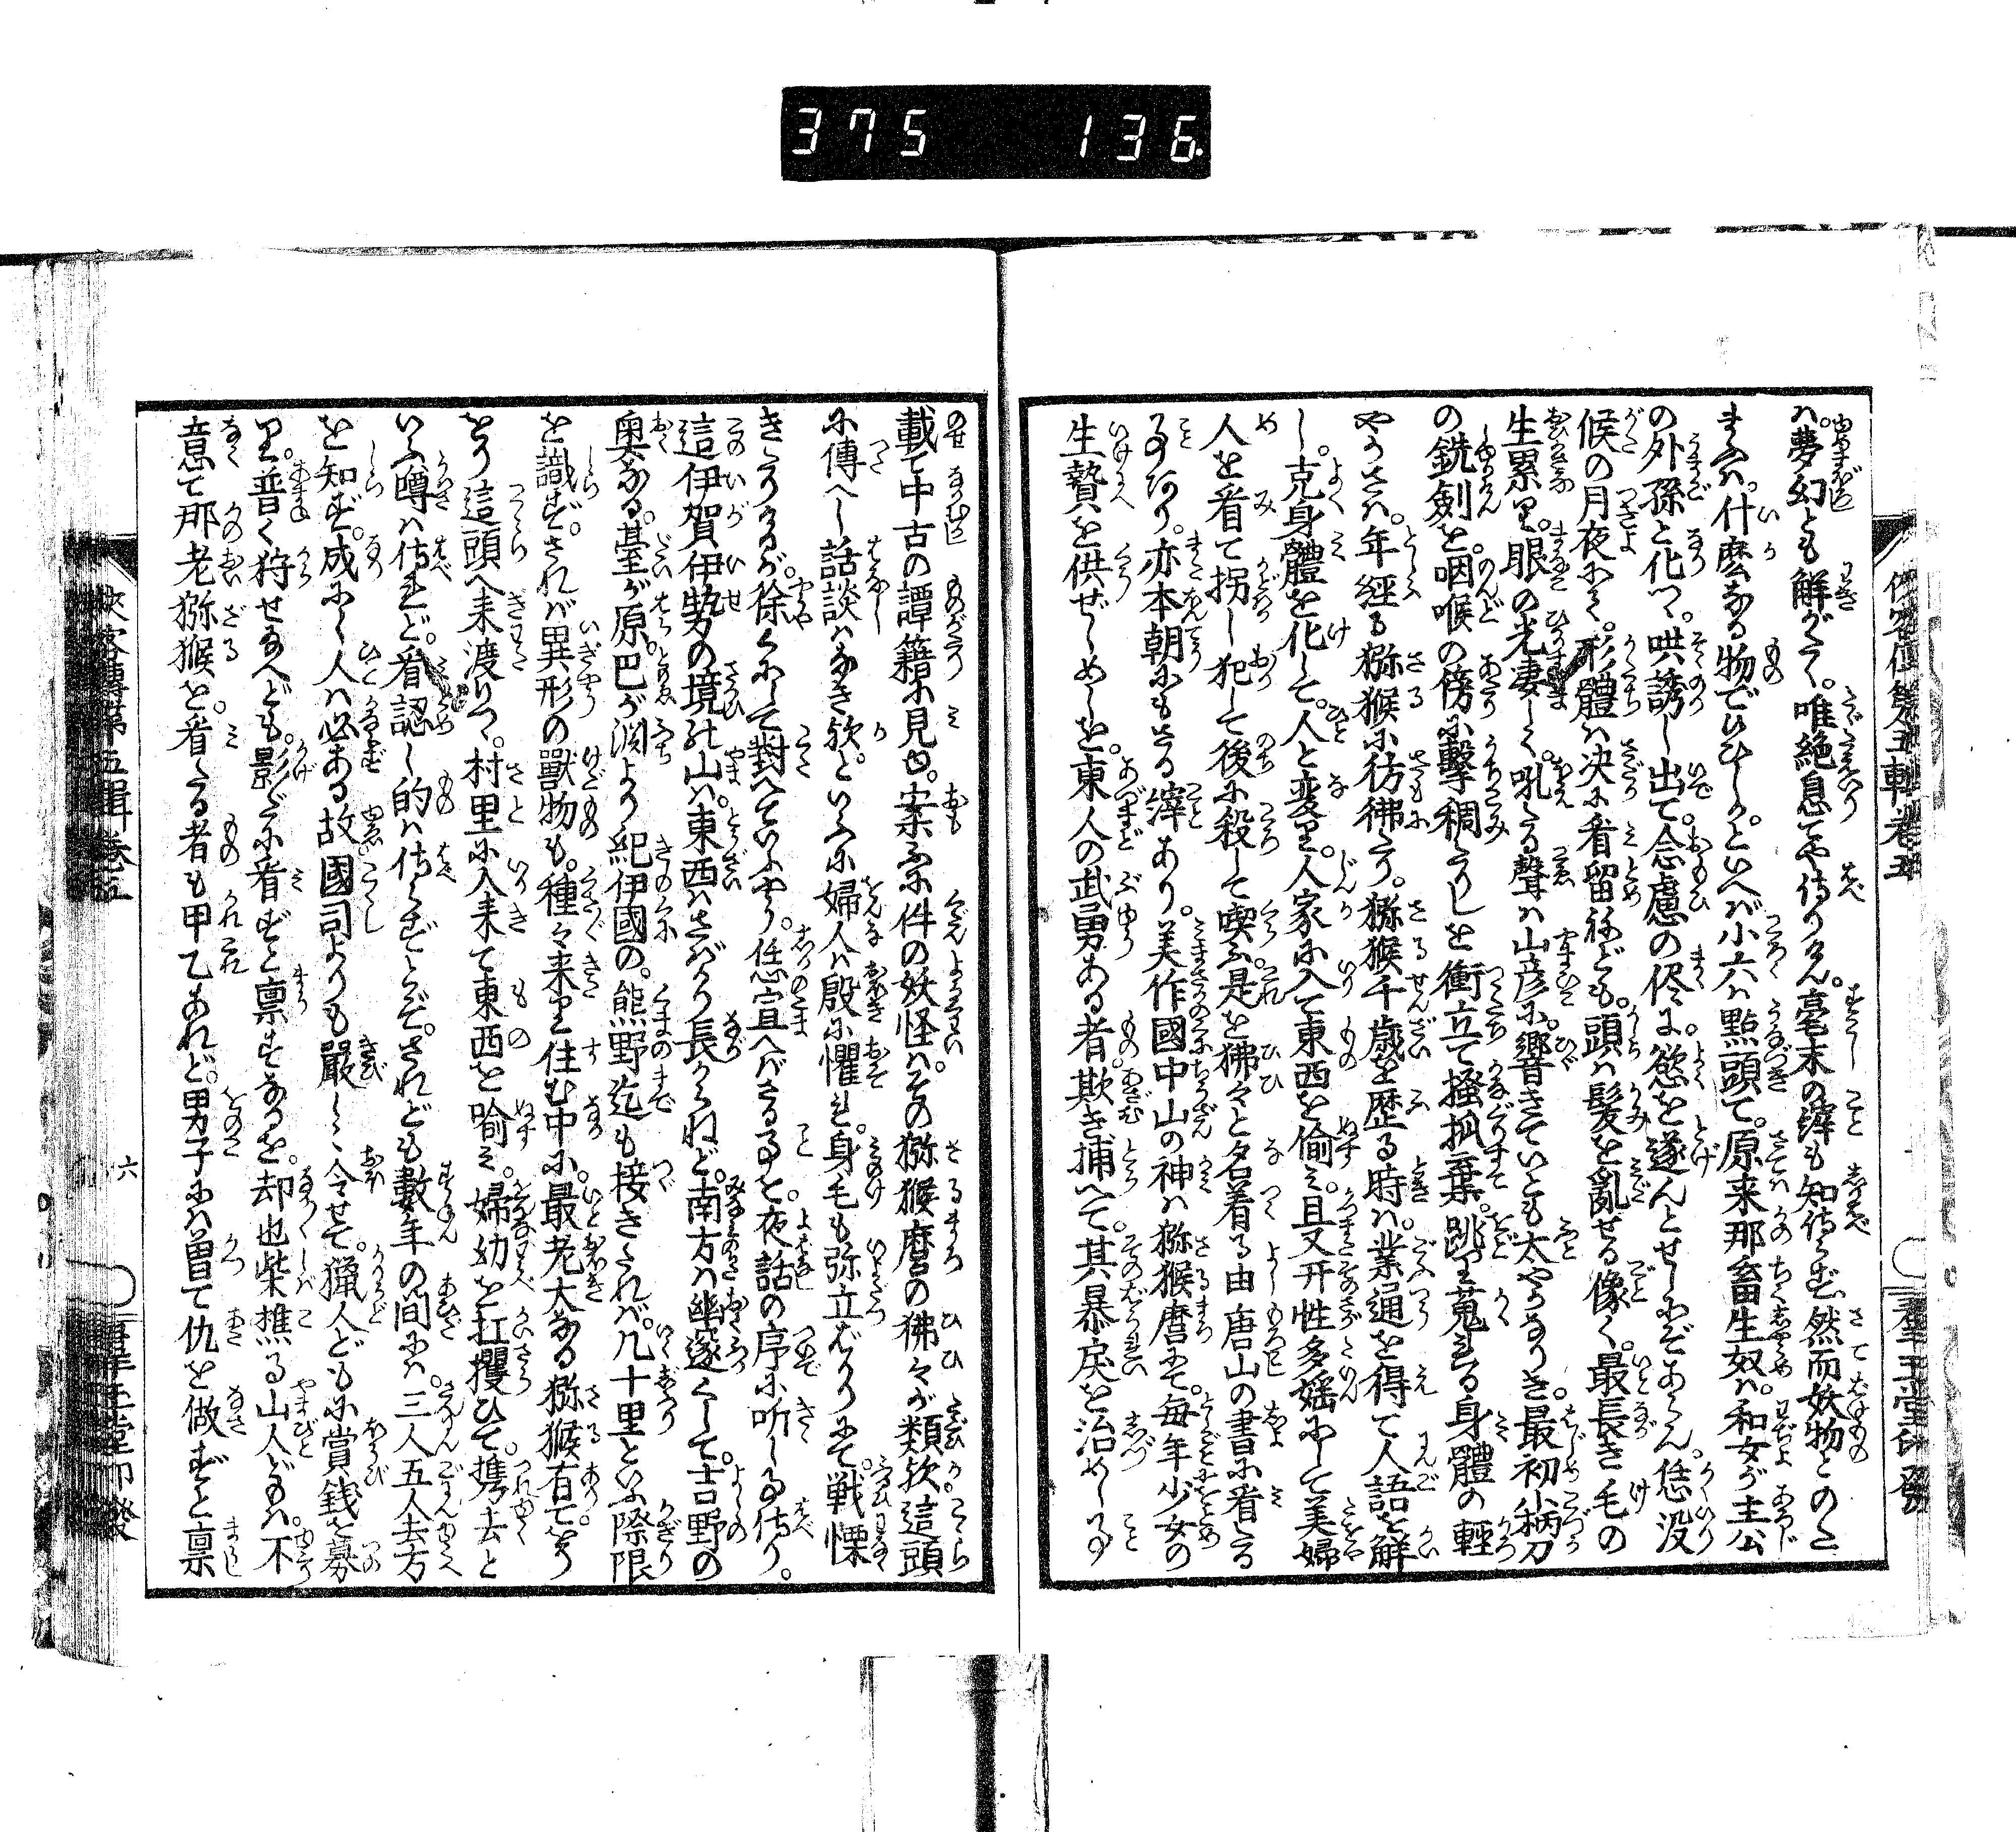 375 136
は。夢幻とも解がたく。唯絶息てや侍りけん。毫末の縡も知侍らず。然而妖物とのた
まふは。什麼なる物でひひしか。といへば小六は點頭て。原来那畜生奴は。和女が主公
の外孫と化つ。哄誘し出て。念慮の侭に。慾を遂んとせしにぞあらん。恁没
候の月夜にて。形體は决に看留ねども。頭は髪を亂せる像く。最長き毛の
生累り。眼の光凄しく。吼たる聲は山彦に。響きていとも太やかなりき。最初小柄刀
の銑鋧を。咽喉の傍に撃稠たりしを衝立て掻抓棄。跳り蒐れる身體の輕
やかさは。年經る猕猴に彷彿たり。猕猴千歳を歴る時は。業通を得て人語を解
し。克身體を化して。人と変り。人家に入て東西を偷み。且又开性多婬にして美婦
人を看て拐し犯して後に殺して喫ふ。是を狒々と名着る由唐山の書に看たる
ことあり。亦本朝にもさる縡あり。美作國中山の神は猕猴麿にて。毎年少女の
生贄を供ぜしめしを。東人の武勇ある者欺き捕へて。其暴戻を治めしこと
載て中古の譚籍に見ゆ。案ふに件の妖怪は。その猕猴麿の狒々が類歟。這頭
に傳へし話談はなき歟。といふに婦人は殷に懼れ。身毛も弥立ばかりにて。戦慄
きたりけるが。徐くにして對へていふやう。恁宣へばさることを。夜話の序に听しる侍り。
這伊賀伊勢の境なる山は。東西はさばかり長からねど。南方は幽邃くして。吉野の
奥なる。臺が原。巴が渕より。紀伊國の。熊野迄も接きたれば。几十里といふ際限
を識らず。されば異形の獸物も。種々来り住む中に。最老大なる猕猴有て。をり
をり這頭へ来渡りつ。村里に入来て東西を喩み。婦幼を扛攫ひて。携去と
いふ噂は侍れど。看認し的は侍らずとぞ。されども數年の間には。三人五人去方
を知ず。成にし人は必ある故國司よりも嚴しく令せて。獵人どもに賞銭を募
り。普く狩せ給へども。影だに看ずと禀すなるを。却也柴樵る山人どもは。不
意て那老猕猴を。看たる者も甲乙あれど。男子には曽て仇を做ずと禀
六